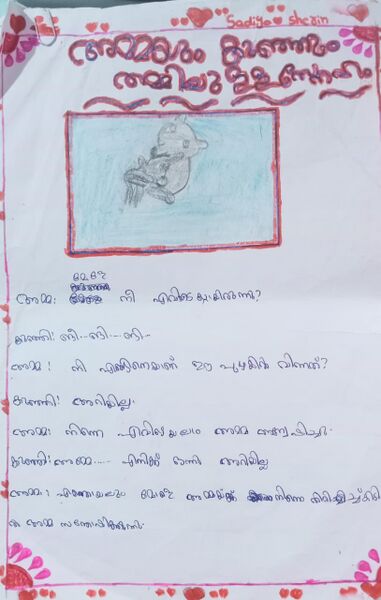 Sadiya sherin
അമ്മയും കുഞ്ഞും
തമ്മിലുള്ള സ്നേഹം
മോളേ
അമ്മ: നീ എവിടെ ആയിരുന്നു?
കുഞ്ഞി: ങീ...ങി....ങി...
അമ്മ: നീ എങ്ങിനെയാണ് ഈ പുഴയിൽ വീണത്?
കുഞ്ഞി: അറിയില്ല.
അമ്മ: നിന്നെ എവിടെയെല്ലാം അമ്മ അന്വേഷിച്ചു.
കുഞ്ഞി: അമ്മേ..... എനിക്ക് ഒന്നും അറിയില്ല
അമ്മ: എന്തായാലും മോളേ അമ്മയ്ക്ക് നിന്നെ തിരിച്ച് കിട്ടി
അമ്മ സന്തോഷിക്കുന്നു.